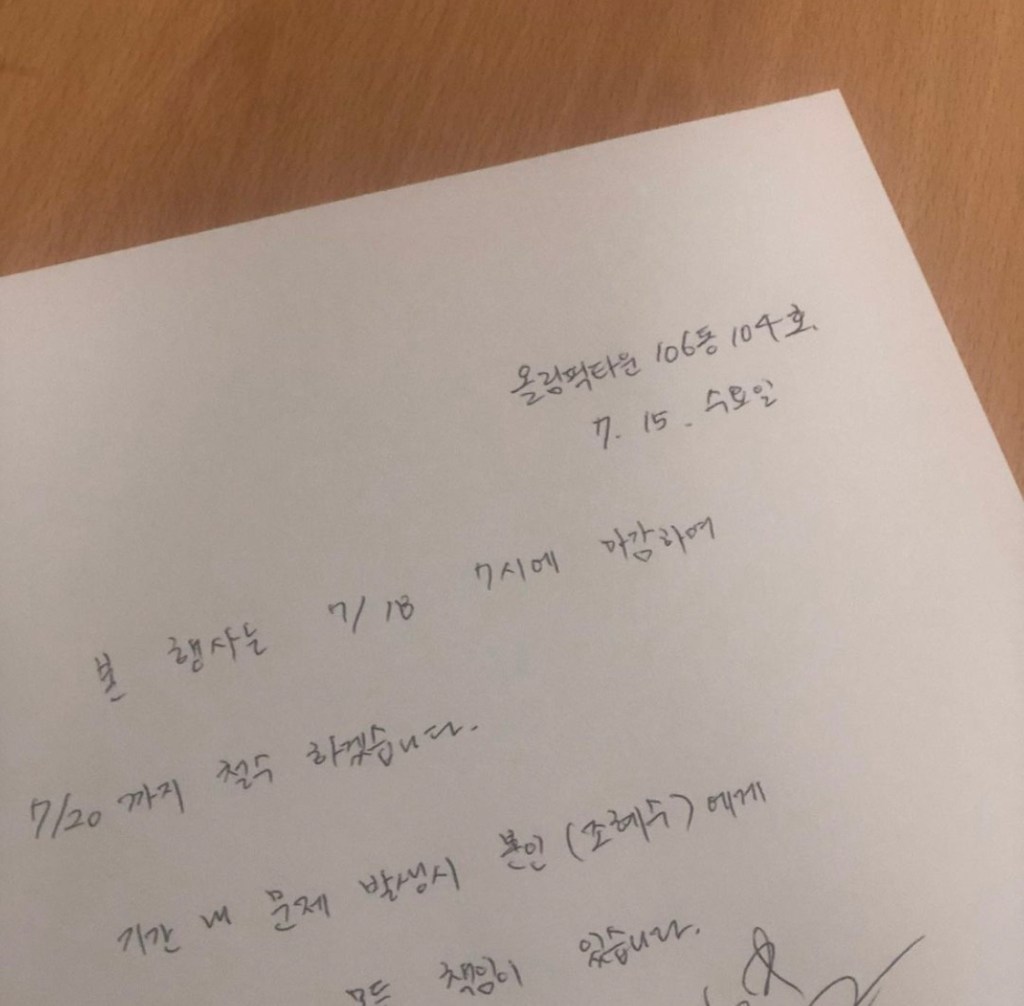 올림픽타운 106동 104호.
7. 15. 수요일
본 행사는 7/18 7시에 마감하여
7/20 까지 철수 하겠습니다.
기간 내 문제 발생시 본인 (조혜수) 에게
모든 책임이 있습니다.